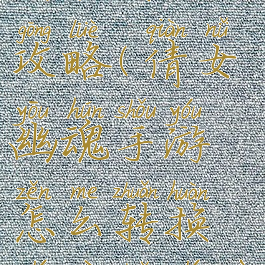 gōng lüè qiàn nǚ
攻略(倩女
yōu hún shǒu yóu
幽魂手游
zěn me zhuǎn huàn
怎么转换